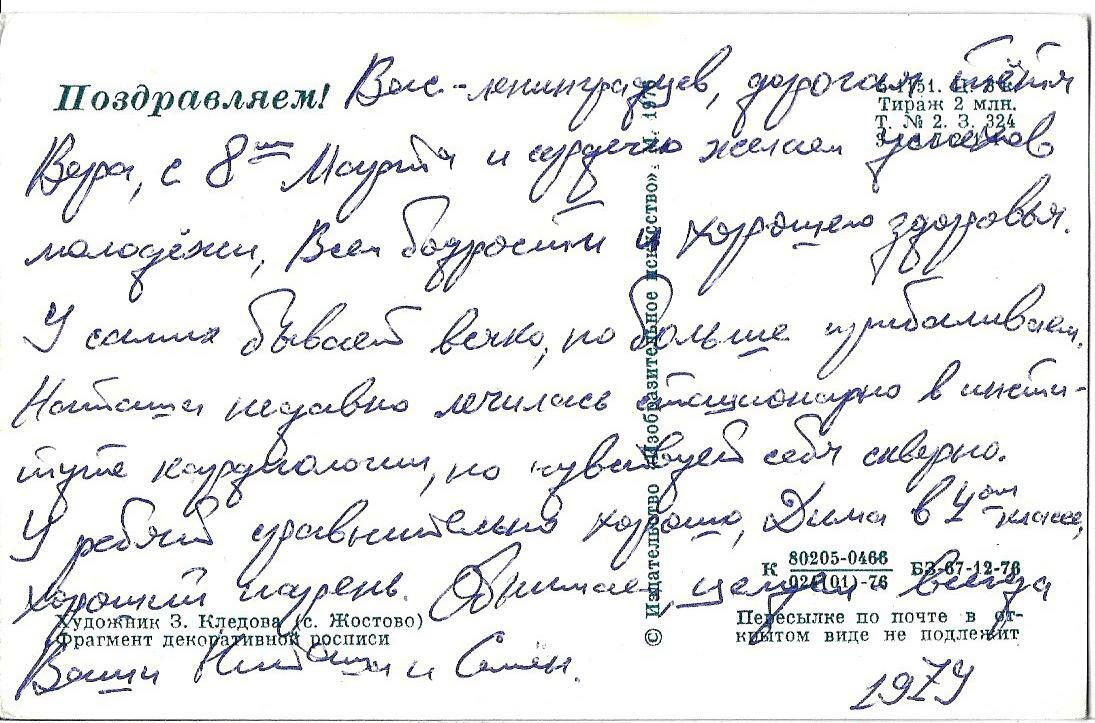 Поздравляем! Вас - ленинградцев, дорогая тётя
Вера, с 8ым Марта и сердечно желаем успехов
молодёжи, Всем бодрости и хорошего здоровья.
У самих бывает всяко, но больше прибаливаем.
Наташа недавно лечилась стационарно в инсти-
туте кардиологии, но чувствует себя скверно.
У ребят сравнительно хорошо, Дима в 4ом классе,
хороший парень. Обнимаем, целуем всегда
Ваши Наташа и Семён.
1979
Тираж 2 млн.
Т. № 2. З. 324
© Издательство «Изобразительное искусство». М. 197
К 80205-0466
024(01)-76
БЗ-67-12-76
Художник З. Кледова (с. Жостово)
Фрагмент декоративной росписи
Пересылке по почте в от-
крытом виде не подлежит